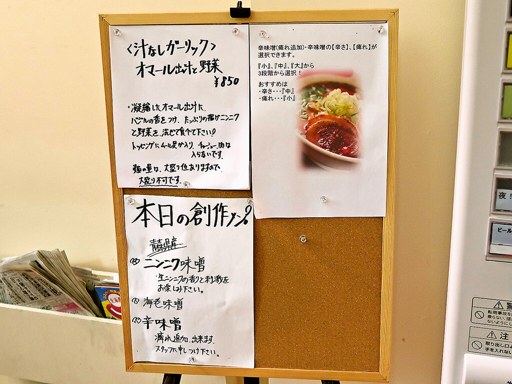 〈汁なしガーリック〉
オマール出汁と野菜
¥850
・凝縮したオマール出汁に
バジルの香をつけ、たっぷりの揚げニンニク
と野菜を、混ぜて食べて下さい!
麺の量は、大盛り位ありますので、
大盛り不可です。
辛味噌(痺れ追加)・辛味噌の【辛さ】、【痺れ】が
選択できます。
『小』、『中』、『大』から
3段階から選択!
おすすめは
・辛さ・・・『中』
・痺れ・・・『小』
本日の創作メン。
青森県産
ニンニク味噌
生ニンニクの香りと刺激を
お楽しみ下さい。
海老味噌
辛味噌
痺れ追加、出来ます。
スタッフに申しつけ下さい。
ビール
警
注